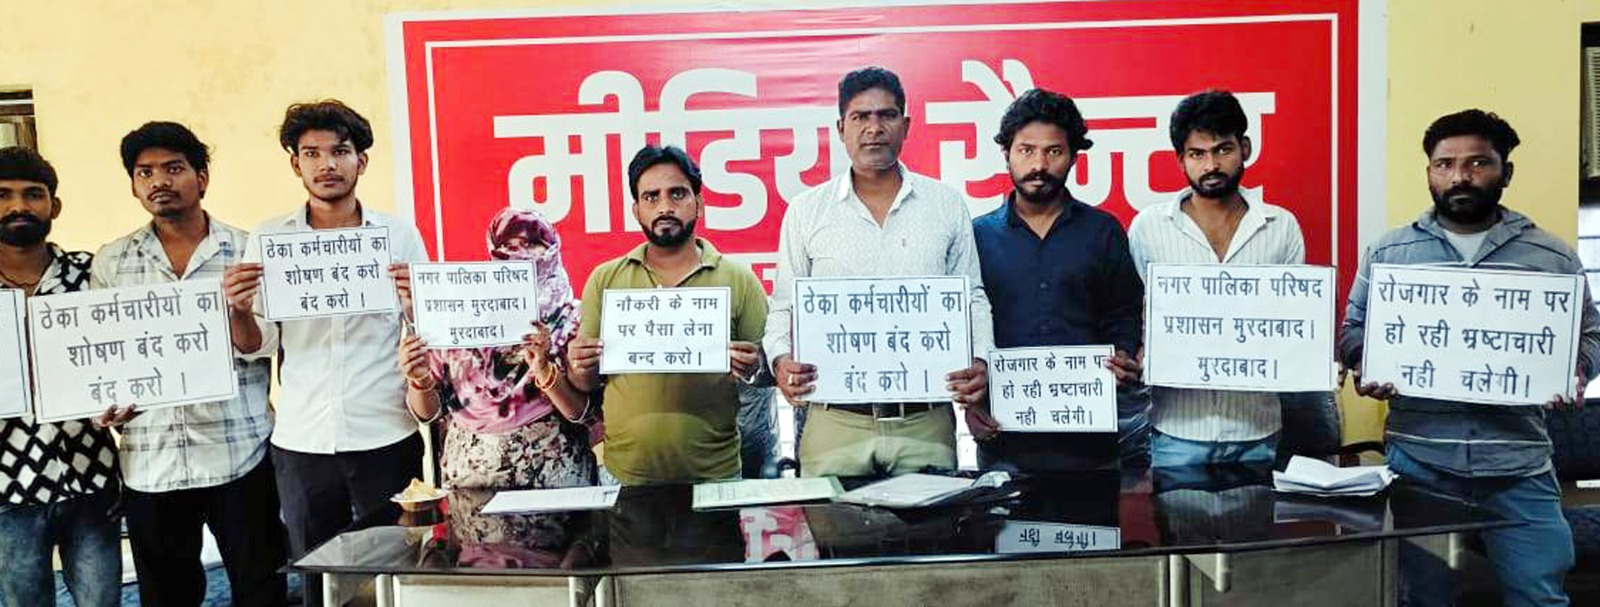 मीडिया सैन्टर
ठेका कर्मचारीयों का
शोषण बंद करो
बंद करो ।
ठेका कर्मचारीयों का
शोषण बंद करो
बंद करो ।
नगर पालिका परिषद
प्रशासन मुरदाबाद।
मुरदाबाद।
नौकरी के नाम
पर पैसा लेना
बन्द करो।
ठेका कर्मचारीयों का
शोषण बंद करो
बंद करो ।
रोजगार के नाम पर
हो रही भ्रष्टाचारी
नही चलेगी।
नगर पालिका परिषद
प्रशासन मुरदाबाद।
मुरदाबाद।
रोजगार के नाम पर
हो रही भ्रष्टाचारी
नही चलेगी।